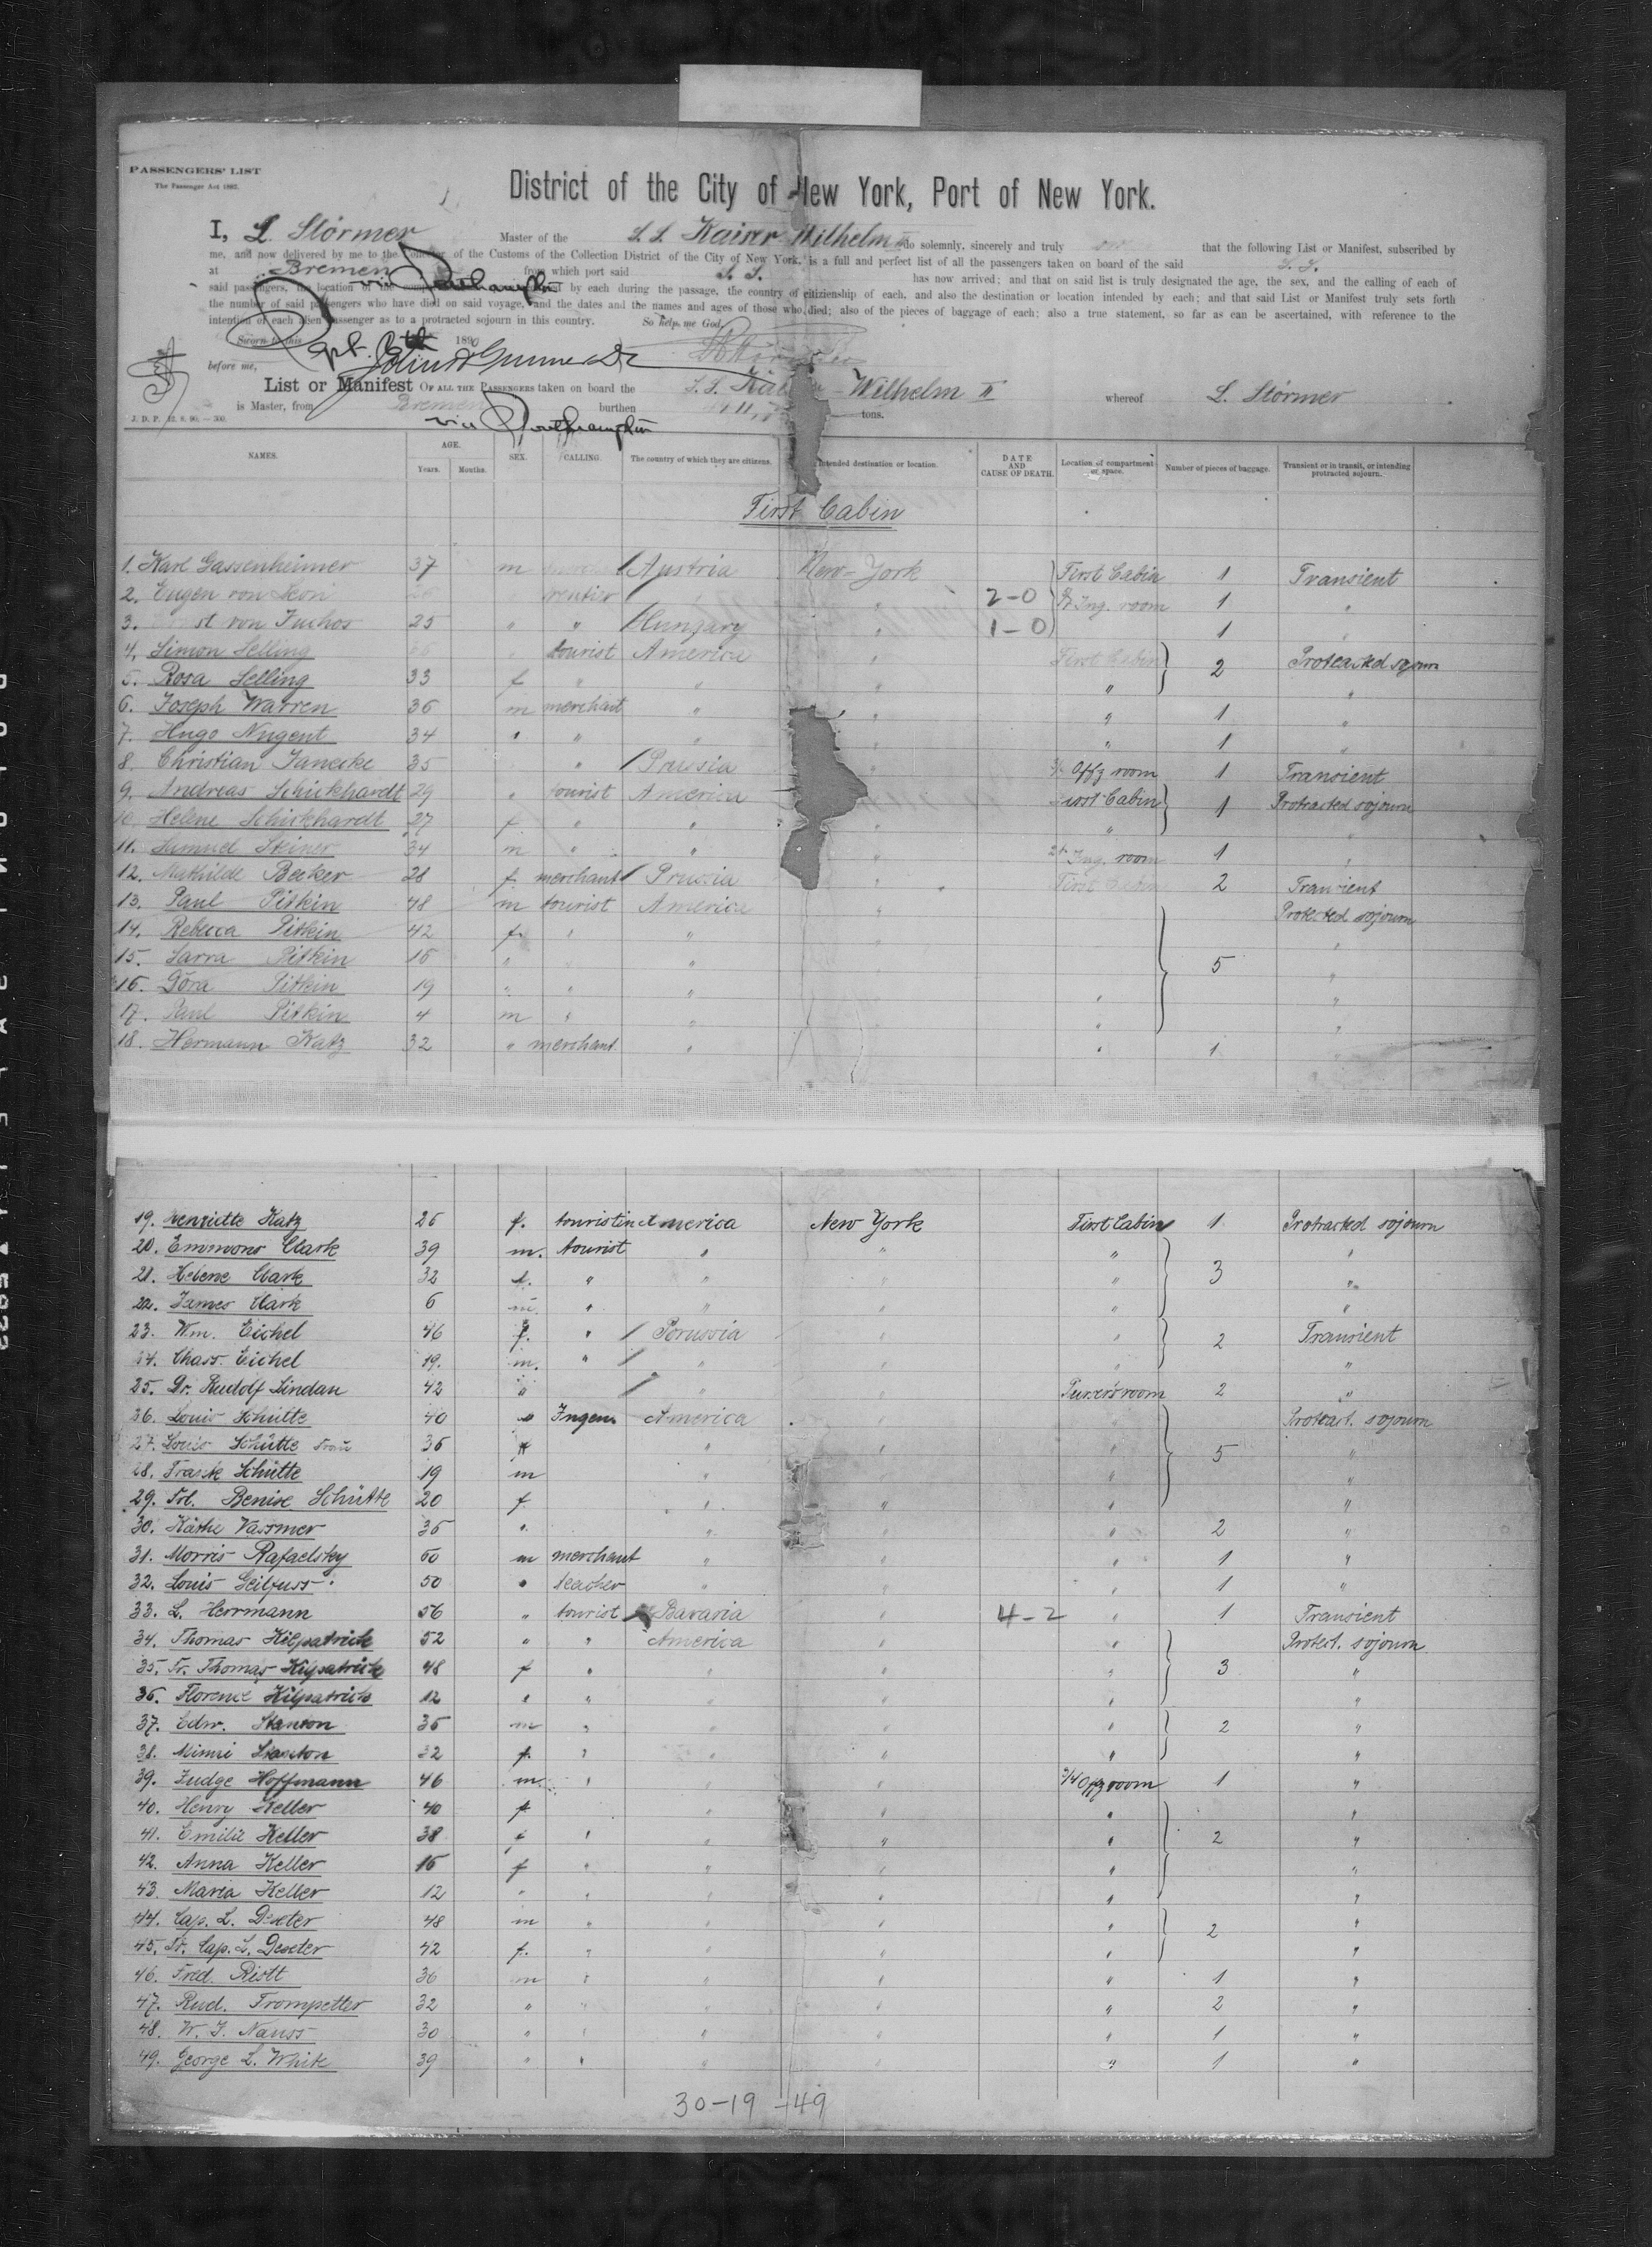 PASSENGERS' LIST
The Passenger Act 1882.
District of the City of New York, Port of New York.
I, L. Störmer Master of the S.S. Kaiser Wilhelm II do solemnly, sincerely and truly that the following List or Manifest, subscribed by
me, and now delivered by me to the Collector of the Customs of the Collection District of the City of New York, is a full and perfect list of all the passengers taken on board of the said S.S.
at Bremen via Southampton from which port said S.S. has now arrived; and that on said list is truly designated the age, the sex, and the calling of each of
said passengers, the location of the compartment by each during the passage, the country of citizenship of each, and also the destination or location intended by each; and that said List or Manifest truly sets forth
the number of said passengers who have died on said voyage, and the dates and the names and ages of those who died; also of the pieces of baggage of each; also a true statement, so far as can be ascertained, with reference to the
intention of each alien passenger as to a protracted sojourn in this country. So help me God.
Sworn to this Sept. 189
before me,
List or Manifest OF ALL THE PASSENGERS taken on board the S.S. Kaiser Wilhelm II whereof L. Störmer
is Master, from Bremen burthen tons.
via Southampton
J. D. P. 12. 8. 90. — 500.
NAMES. AGE. Years. Months. SEX. CALLING. The country of which they are citizens. Intended destination or location. DATE AND CAUSE OF DEATH. Location of compartment or space. Number of pieces of baggage. Transient or in transit, or intending protracted sojourn.
First Cabin
1. Karl Gassenheimer 37 m Austria New-York First Cabin 1 Transient
2. Eugen von Leon rentier 2-0 Ing. room 1 "
3. st von Fuchos 25 " " Hungary " 1-0 1 "
4. Simon Selling tourist America " First Cabin 2 Protracted sojourn
5. Rosa Selling 33 f " " " " "
6. Joseph Warren 36 m merchant " " " 1 "
7. Hugo Nugent 34 " " " " 1 "
8. Christian Janecke 35 " Prussia " Offz room 1 Transient
9. Andreas Schickhardt 29 " tourist America First Cabin 1 Protracted sojourn
10. Helene Schickhardt 27 f " " " " "
11. Samuel Steiner 34 m " " " Ing. room 1 "
12. Mathilde Becker 28 f merchant Prussia " First Cabin 2 Transient
13. Paul Pitkin 48 m tourist America " Protected sojourn
14. Rebecca Pitkin 42 f " " " "
15. Sarra Pitkin 16 " " 5 "
16. Dora Pitkin 19 " " " " "
17. Paul Pitkin 4 m " " " "
18. Hermann Katz 32 " merchant " " 1 "
19. Henriette Katz 26 f. touristin America New York First Cabin 1 Protracted sojourn
20. Emmons Clark 39 m. tourist " " " "
21. Helene Clark 32 f. " " " " 3 "
22. James Clark 6 m. " " " " "
23. Wm. Eichel 46 f. " Prussia " " 2 Transient
24. Chass. Eichel 19. m. " " " "
25. Dr. Rudolf Lindau 42 " " Purser's room 2 "
26. Louis Schütte 40 " Ingen America Protract. sojourn
27. Louis Schütte Frau 36 f " " " 5 "
28. Frank Schütte 19 m " " "
29. Frl. Benise Schütte 20 f " " " "
30. Käthe Vassmer 36 " " " " 2 "
31. Morris Rafaelsky 50 m merchant " " " 1 "
32. Louis Geilfuss 50 " teacher " " " 1 "
33. L. Herrmann 56 " tourist Bavaria " 4-2 " 1 Transient
34. Thomas Kilpatrick 52 " " America " " Protect. sojourn
35. Fr. Thomas Kilpatrick 48 f " " " " 3 "
36. Florence Kilpatrick 12 " " " " " "
37. Edw. Stanton 36 m " " " " 2 "
38. Minni Stanton 32 f. " " " " "
39. Judge Hoffmann 46 m " " " 3/4 Offz room 1 "
40. Henry Keller 40 f " " " "
41. Emilie Keller 38 f " " " " 2 "
42. Anna Keller 16 f " " " " "
43. Maria Keller 12 " " " " " "
44. Cap. L. Dexter 48 m " " " " 2 "
45. Fr. Cap. L. Dexter 42 f. " " " " "
46. Fred. Ristt 36 m " " " " 1 "
47. Rud. Trompetter 32 " " " " " 2 "
48. W. J. Nauss 30 " " " " " 1 "
49. George L. White 39 " " " " " 1 "
30-19-49